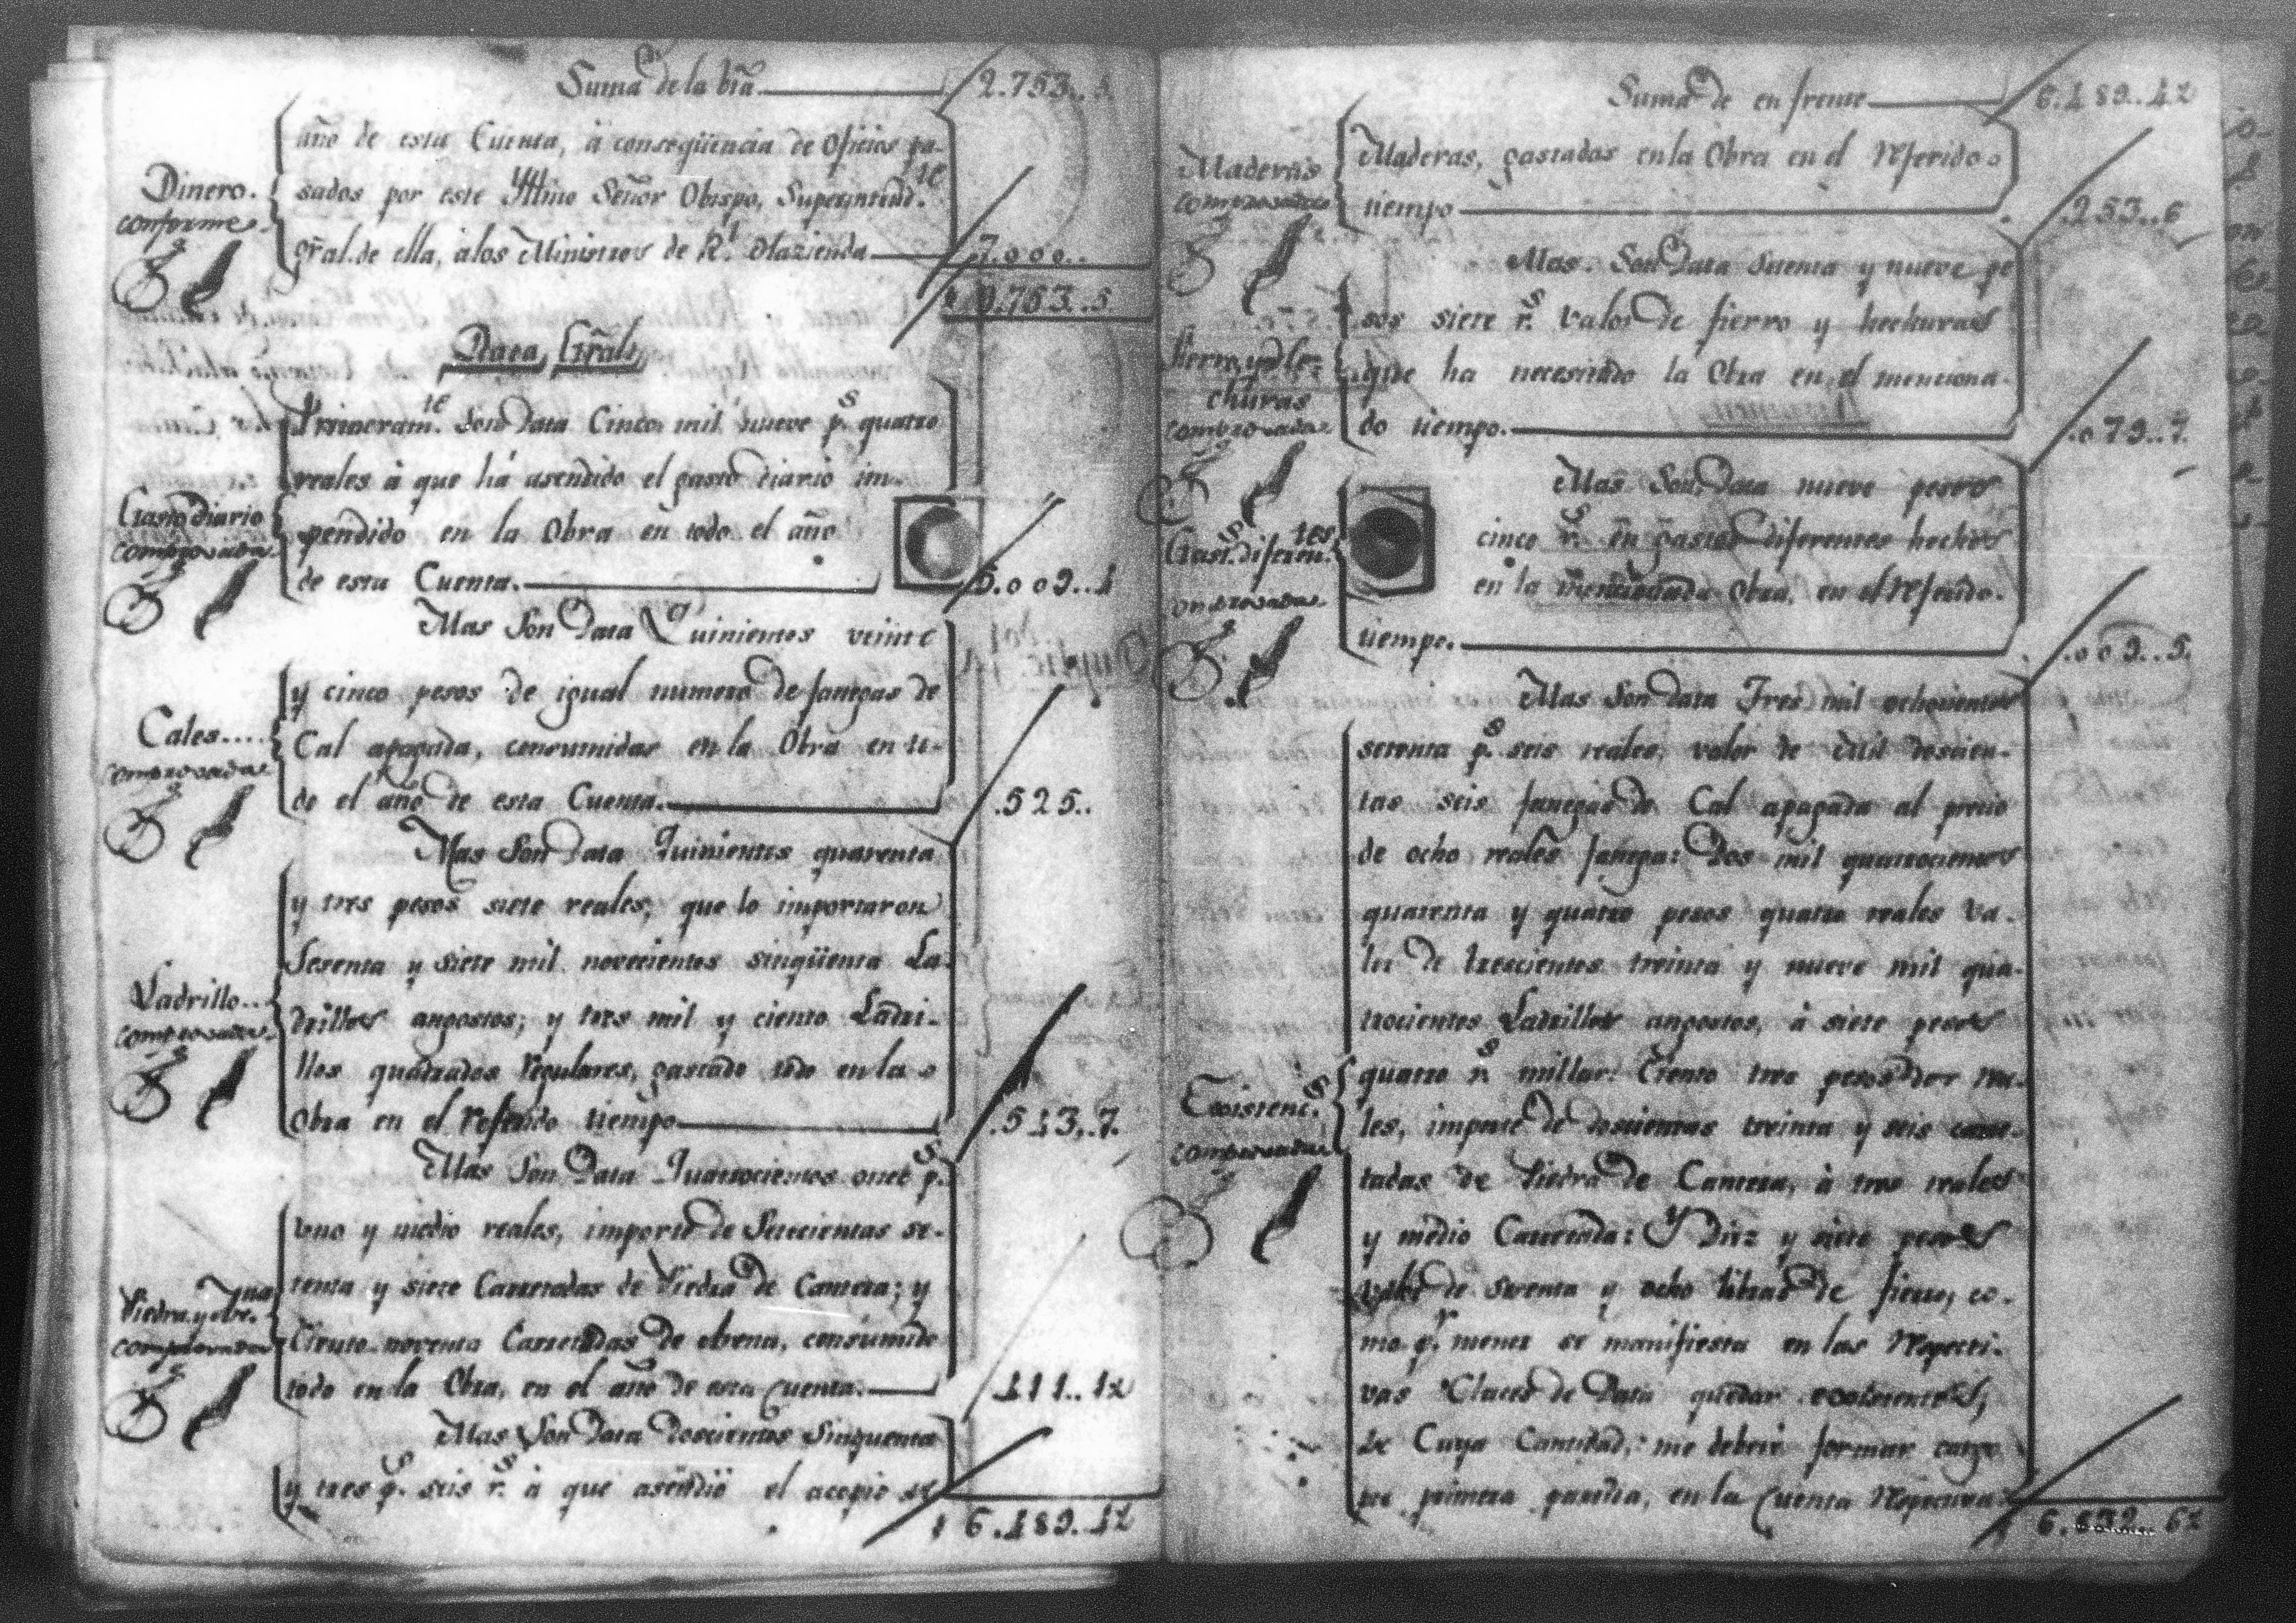 Suma de la bta. 2.753..5.
año de esta Cuenta, à conseqüencia de Oficios pa-
Dinero.
conforme
sados por este Yllmo Señor Obispo, Superintend.te
gral. de ella, à los Ministros de Rl. Hazienda 7.000..
9.753..5
Data Gral.
Primeram.te Son Data Cinco mil nueve p.s quatro
reales à que há asendido el gasto diario im-
Gasto diario
comprovada
pendido en la Obra en todo el año
de esta Cuenta. 5.009..4
Mas Son Data Quinientos veinte
y cinco pesos de igual numero de fanegas de
Cales....
comprovada
Cal apagada, consumidas en la Obra en to-
do el año de esta Cuenta. .525..
Mas Son Data Quinientos quarenta
y tres pesos siete reales, que lo importaron
Setenta y siete mil novecientos sinqüenta La-
Ladrillo...
comprovada
drillos angostos; y tres mil y ciento Ladri-
llos quadrados regulares, gastado todo en la
Obra en el referido tiempo .543,.7.
Mas Son Data Quatrocientos once p.s
uno y medio reales, importe de Setecientas se-
tenta y siete Carretadas de Piedra de Cantera; y
Piedra, y Are.na
comprovada
Ciento noventa Carretadas de Arena, consumido
todo en la Obra, en el año de esta Cuenta. 411..1½
Mas Son Data doscientos Sinquenta
y tres p.s seis r.s à que asendió el acopio de
6.489..1½
Suma de en frente 6.489..1½
Maderas
comprovada
Maderas, gastadas en la Obra en el referido
tiempo .253..6
Mas. Son Data Setenta y nueve pe
sos siete r.s valor de fierro y hechuras
Fierro, y de he-
churas
comprovada
que ha necesitado la Obra en el menciona-
do tiempo. .079..7.
Mas Son Data nueve pesos
cinco r.s en gastos diferentes hechos
Gast.s diferen.tes
comprovada
en la mencionada Obra, en el referido
tiempo. .009..5.
Mas Son Data Tres mil ochocientos
setenta p.s seis reales, valor de Mil doscien-
tas seis fanegas de Cal apagada al precio
de ocho reales fanega: Dos mil quatrocientos
quarenta y quatro pesos quatro reales va-
lor de trescientos treinta y nueve mil qua-
trocientos Ladrillos angostos, à siete pesos
quatro r.s millar: Ciento tres pesos dos rea-
Existenc.s
comprovada
les, importe de doscientas treinta y seis carre-
tadas de Piedra de Cantera, à tres reales
y medio Carretada: Y Diez y siete pesos
valor de setenta y ocho libras de fierro, co-
mo p.r menor se manifiesta en las respecti-
vas Clases de Data quedar existentes,
de Cuya Cantidad, me deberé formar cargo
por primera partida, en la Cuenta respectiva